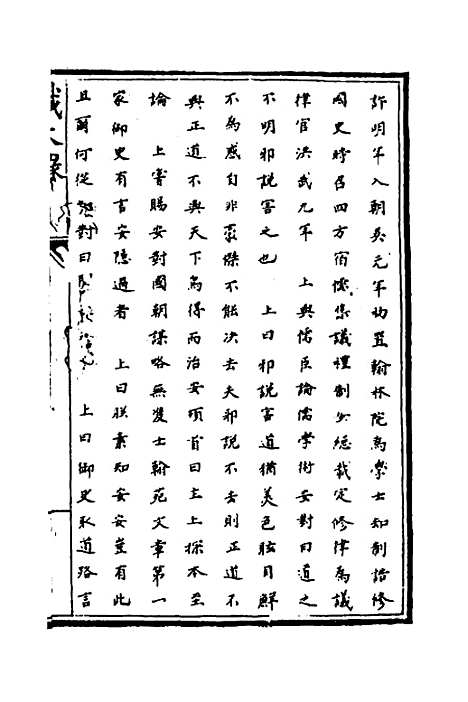 許明年入朝吳元年初置翰林院為學士知制誥修
國史時召四方宿儒集議禮制安總裁定修律為議
律官洪武元年　上與儒臣論儒學術安對曰道之
不明邪說害之也　上曰邪說害道猶美色眩目鮮
不為惑自非豪傑不能決去夫邪說不去則正道不
興正道不興天下烏得而治安頓首曰主上探本至
論　上嘗賜安對國朝謀略無雙士翰苑文章第一
家御史有言安隱過者　上曰朕素知安安豈有此
且爾何從知對曰聞　上曰御史取道路言